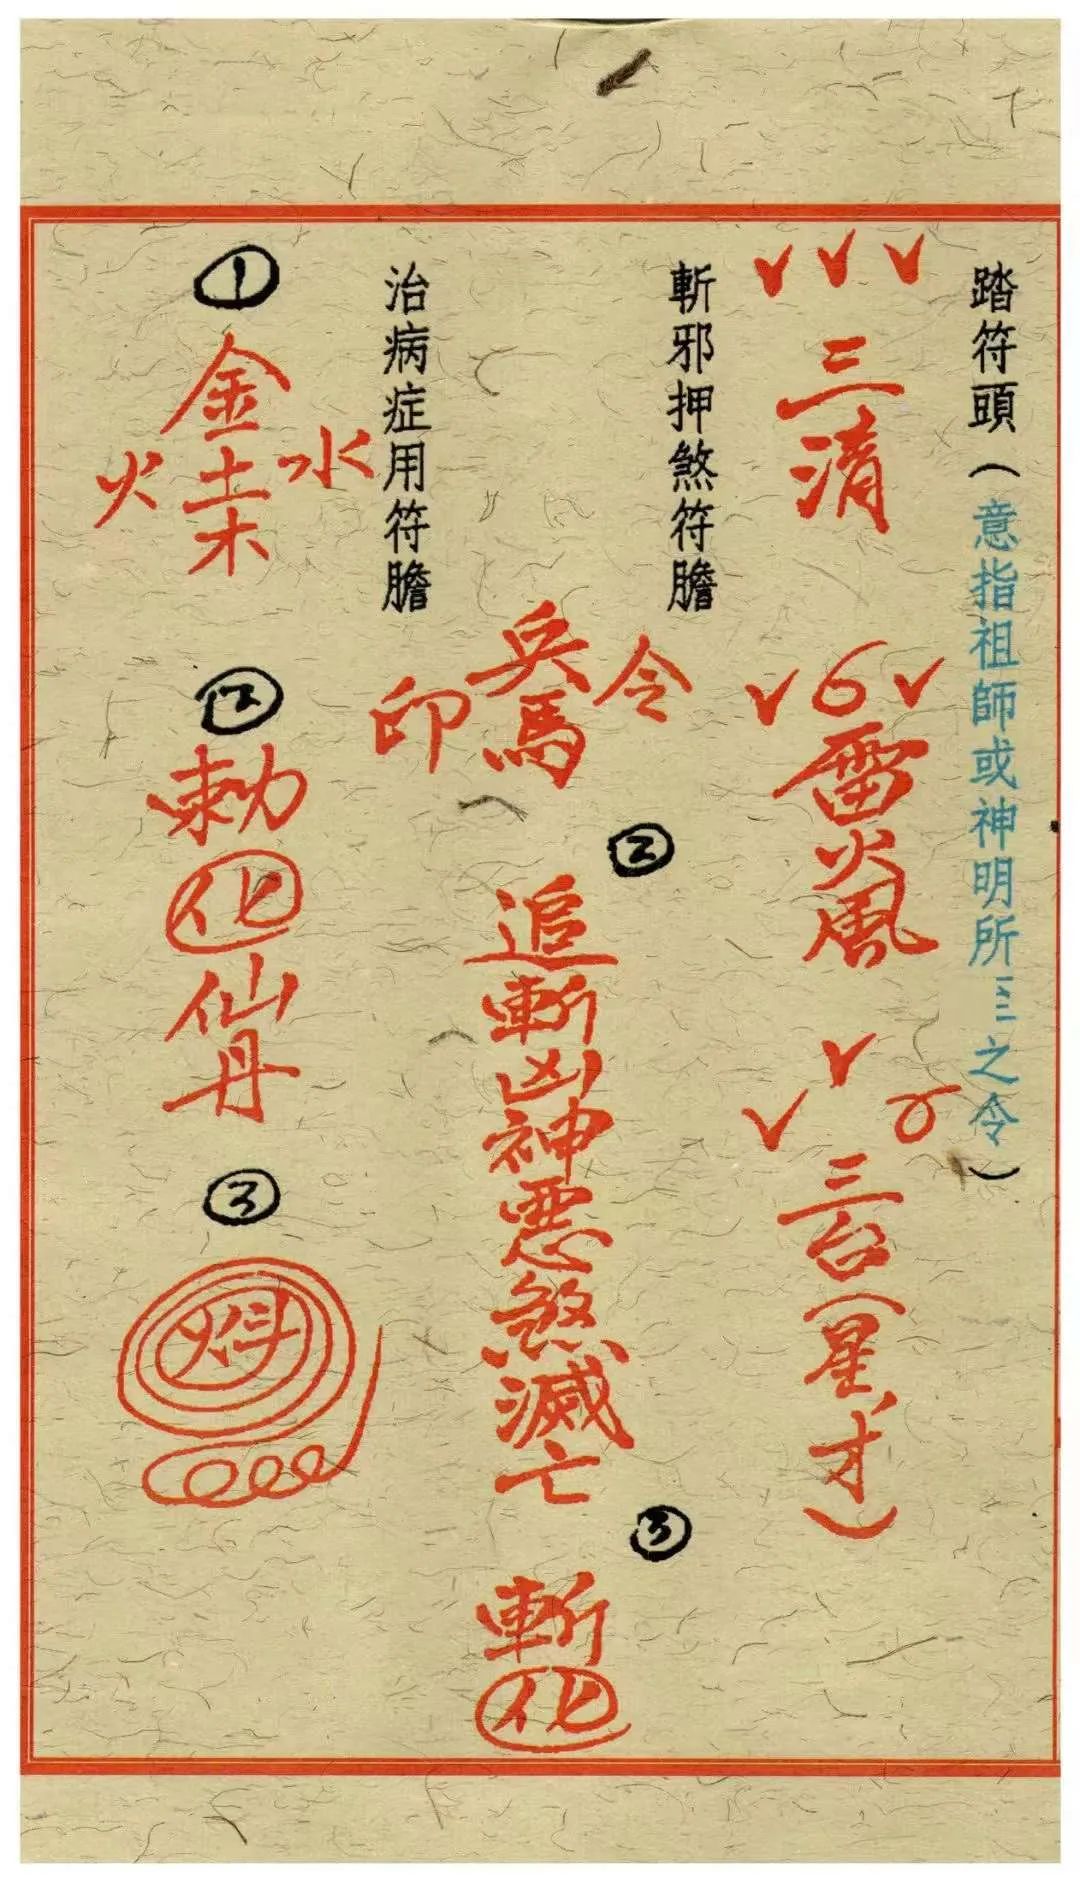 踏符頭（意指祖師或神明所三之令）
三清
雷火風
三台（星、才）
斬邪押煞符膽
令
兵馬
印
②
追斬凶神悪煞滅亡
③
斬化
治病症用符膽
①
金
水土火
木
②
勅化仙丹
③